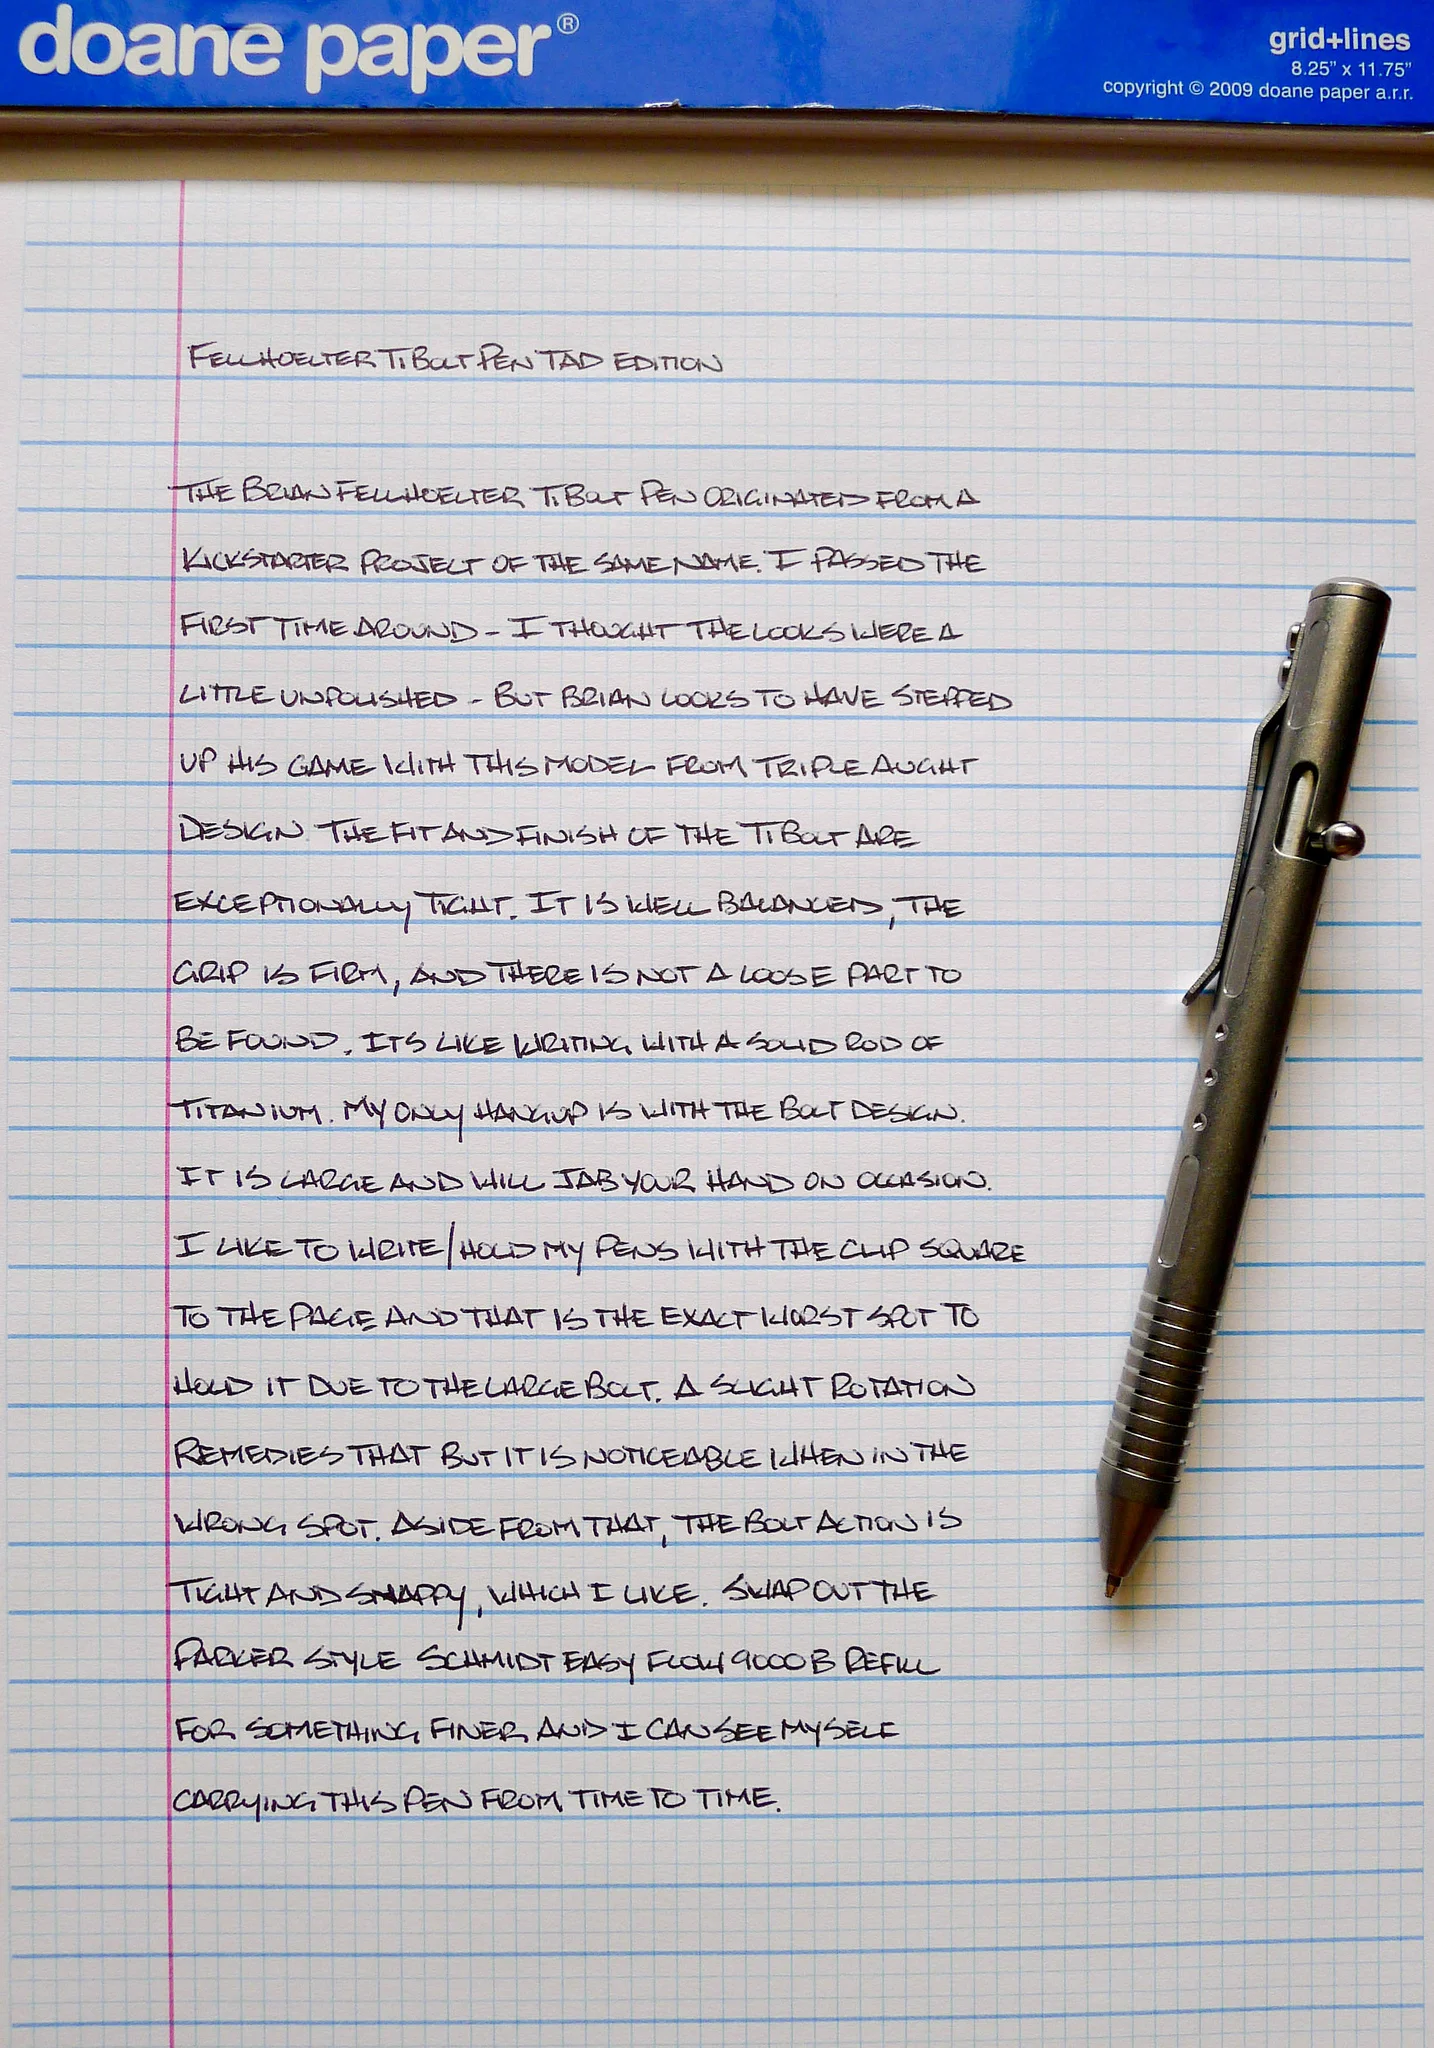 doane paper®
grid+lines
8.25" x 11.75"
copyright © 2009 doane paper a.r.r.
FELLHOELTER TIBOLT PEN TAD EDITION
THE BRIAN FELLHOELTER TIBOLT PEN ORIGINATED FROM A
KICKSTARTER PROJECT OF THE SAME NAME. I PASSED THE
FIRST TIME AROUND - I THOUGHT THE LOOKS WERE A
LITTLE UNPOLISHED - BUT BRIAN LOOKS TO HAVE STEPPED
UP HIS GAME WITH THIS MODEL FROM TRIPLE AUGHT
DESIGN. THE FIT AND FINISH OF THE TIBOLT ARE
EXCEPTIONALLY TIGHT. IT IS WELL BALANCED, THE
GRIP IS FIRM, AND THERE IS NOT A LOOSE PART TO
BE FOUND. ITS LIKE WRITING WITH A SOLID ROD OF
TITANIUM. MY ONLY HANGUP IS WITH THE BOLT DESIGN.
IT IS LARGE AND WILL JAB YOUR HAND ON OCCASION.
I LIKE TO WRITE/HOLD MY PENS WITH THE CLIP SQUARE
TO THE PAGE AND THAT IS THE EXACT WORST SPOT TO
HOLD IT DUE TO THE LARGE BOLT. A SLIGHT ROTATION
REMEDIES THAT BUT IT IS NOTICEABLE WHEN IN THE
WRONG SPOT. ASIDE FROM THAT, THE BOLT ACTION IS
TIGHT AND SNAPPY, WHICH I LIKE. SWAP OUT THE
PARKER STYLE SCHMIDT EASY FLOW 9000 B REFILL
FOR SOMETHING FINER AND I CAN SEE MYSELF
CARRYING THIS PEN FROM TIME TO TIME.